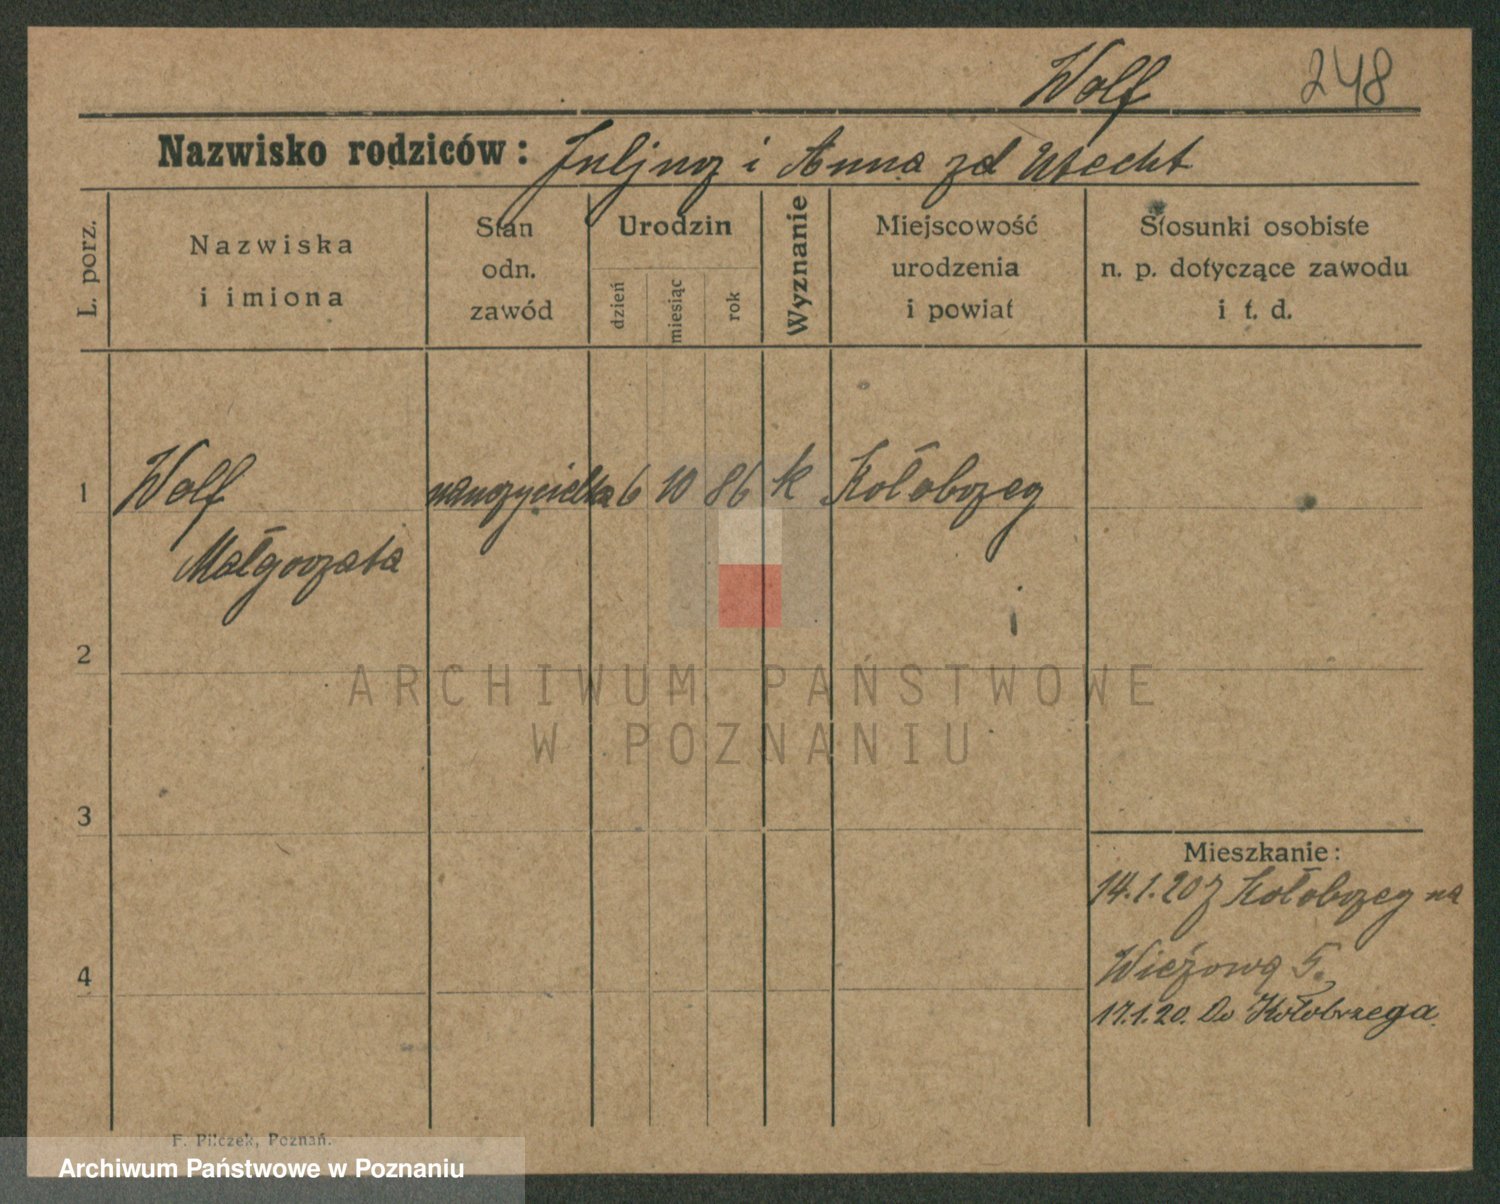 Wolf 248
Nazwisko rodziców: Juljusz i Anna zd Utecht
L. porz.
Nazwiska
i imiona
Stan
odn.
zawód
Urodzin
dzień
miesiąc
rok
Wyznanie
Miejscowość
urodzenia
i powiat
Stosunki osobiste
n. p. dotyczące zawodu
i t. d.
1 Wolf nauczycielka 6 10 86 k Kołobrzeg
Małgorzata
2
ARCHIWUM PAŃSTWOWE
W POZNANIU
3
Mieszkanie:
14.1.20 z Kołobrzeg na
4 Wieżową 5.
17.1.20. Do Kołobrzega.
F. Pilczek, Poznań.
Archiwum Państwowe w Poznaniu